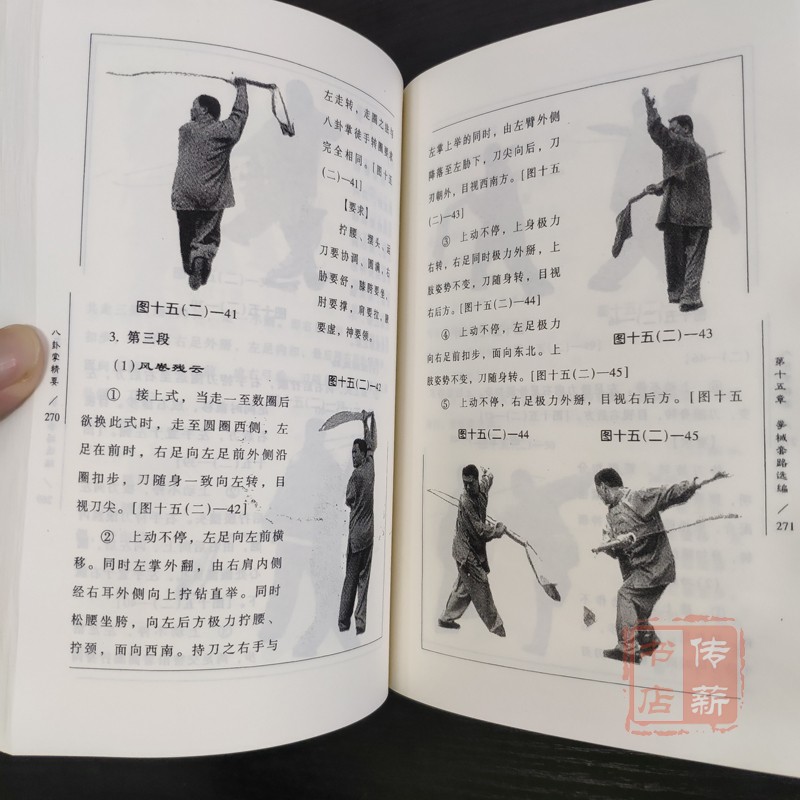 左走转，走圆之法与
八卦掌徒手转圈要求
完全相同。[图十五
(二)—41]
【要求】
拧腰、摆头、运
刀要协调、圆满，右
胁要舒，膝胯要坐，
肘要撑，肩要扣，腋
要虚，神要领。
图十五(二)—41
3. 第三段
(1)风卷残云
① 接上式，当走一至数圈后
欲换此式时，走至圆圈西侧，左
足在前时，右足向左足前外侧沿
圈扣步，刀随身一致向左转，目
视刀尖。[图十五(二)—42]
② 上动不停，左足向左前横
移。同时左掌外翻，由右肩内侧
经右耳外侧向上拧钻直举。同时
松腰坐胯，向左后方极力拧腰、
拧颈，面向西南。持刀之右手与
图十五(二)—42
八卦掌精要
270
左掌上举的同时，由左臂外侧
降落至左胁下，刀尖向后，刀
刃朝外，目视西南方。[图十五
(二)—43]
③ 上动不停，上身极力
右转，右足同时极力外掰，上
肢姿势不变，刀随身转，目视
右后方。[图十五(二)—44]
④ 上动不停，左足极力
向右足前扣步，面向东北。上
肢姿势不变，刀随身转。[图十五(二)—45]
⑤ 上动不停，右足极力外掰，目视右后方。[图十五
图十五(二)—43
图十五(二)—44
图十五(二)—45
第十五章 拳械套路选编
271
传薪
书店